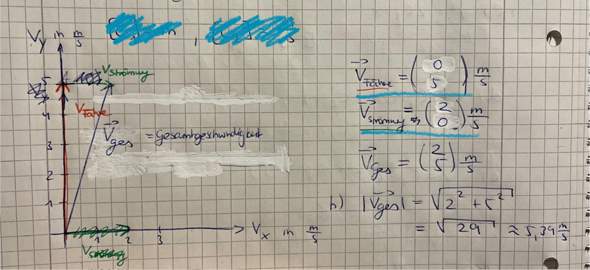 Vy in m/s
VStrömung
5
VFähre
4
V⃗ges = Gesamtgeschwindigkeit
3
2
1
1 2 3 Vx in m/s
V⃗Fähre = (0 5) m/s
V⃗Strömung = (2 0) m/s
V⃗ges = (2 5) m/s
b) |V⃗ges| = √2² + 5²
= √29 ≈ 5,39 m/s